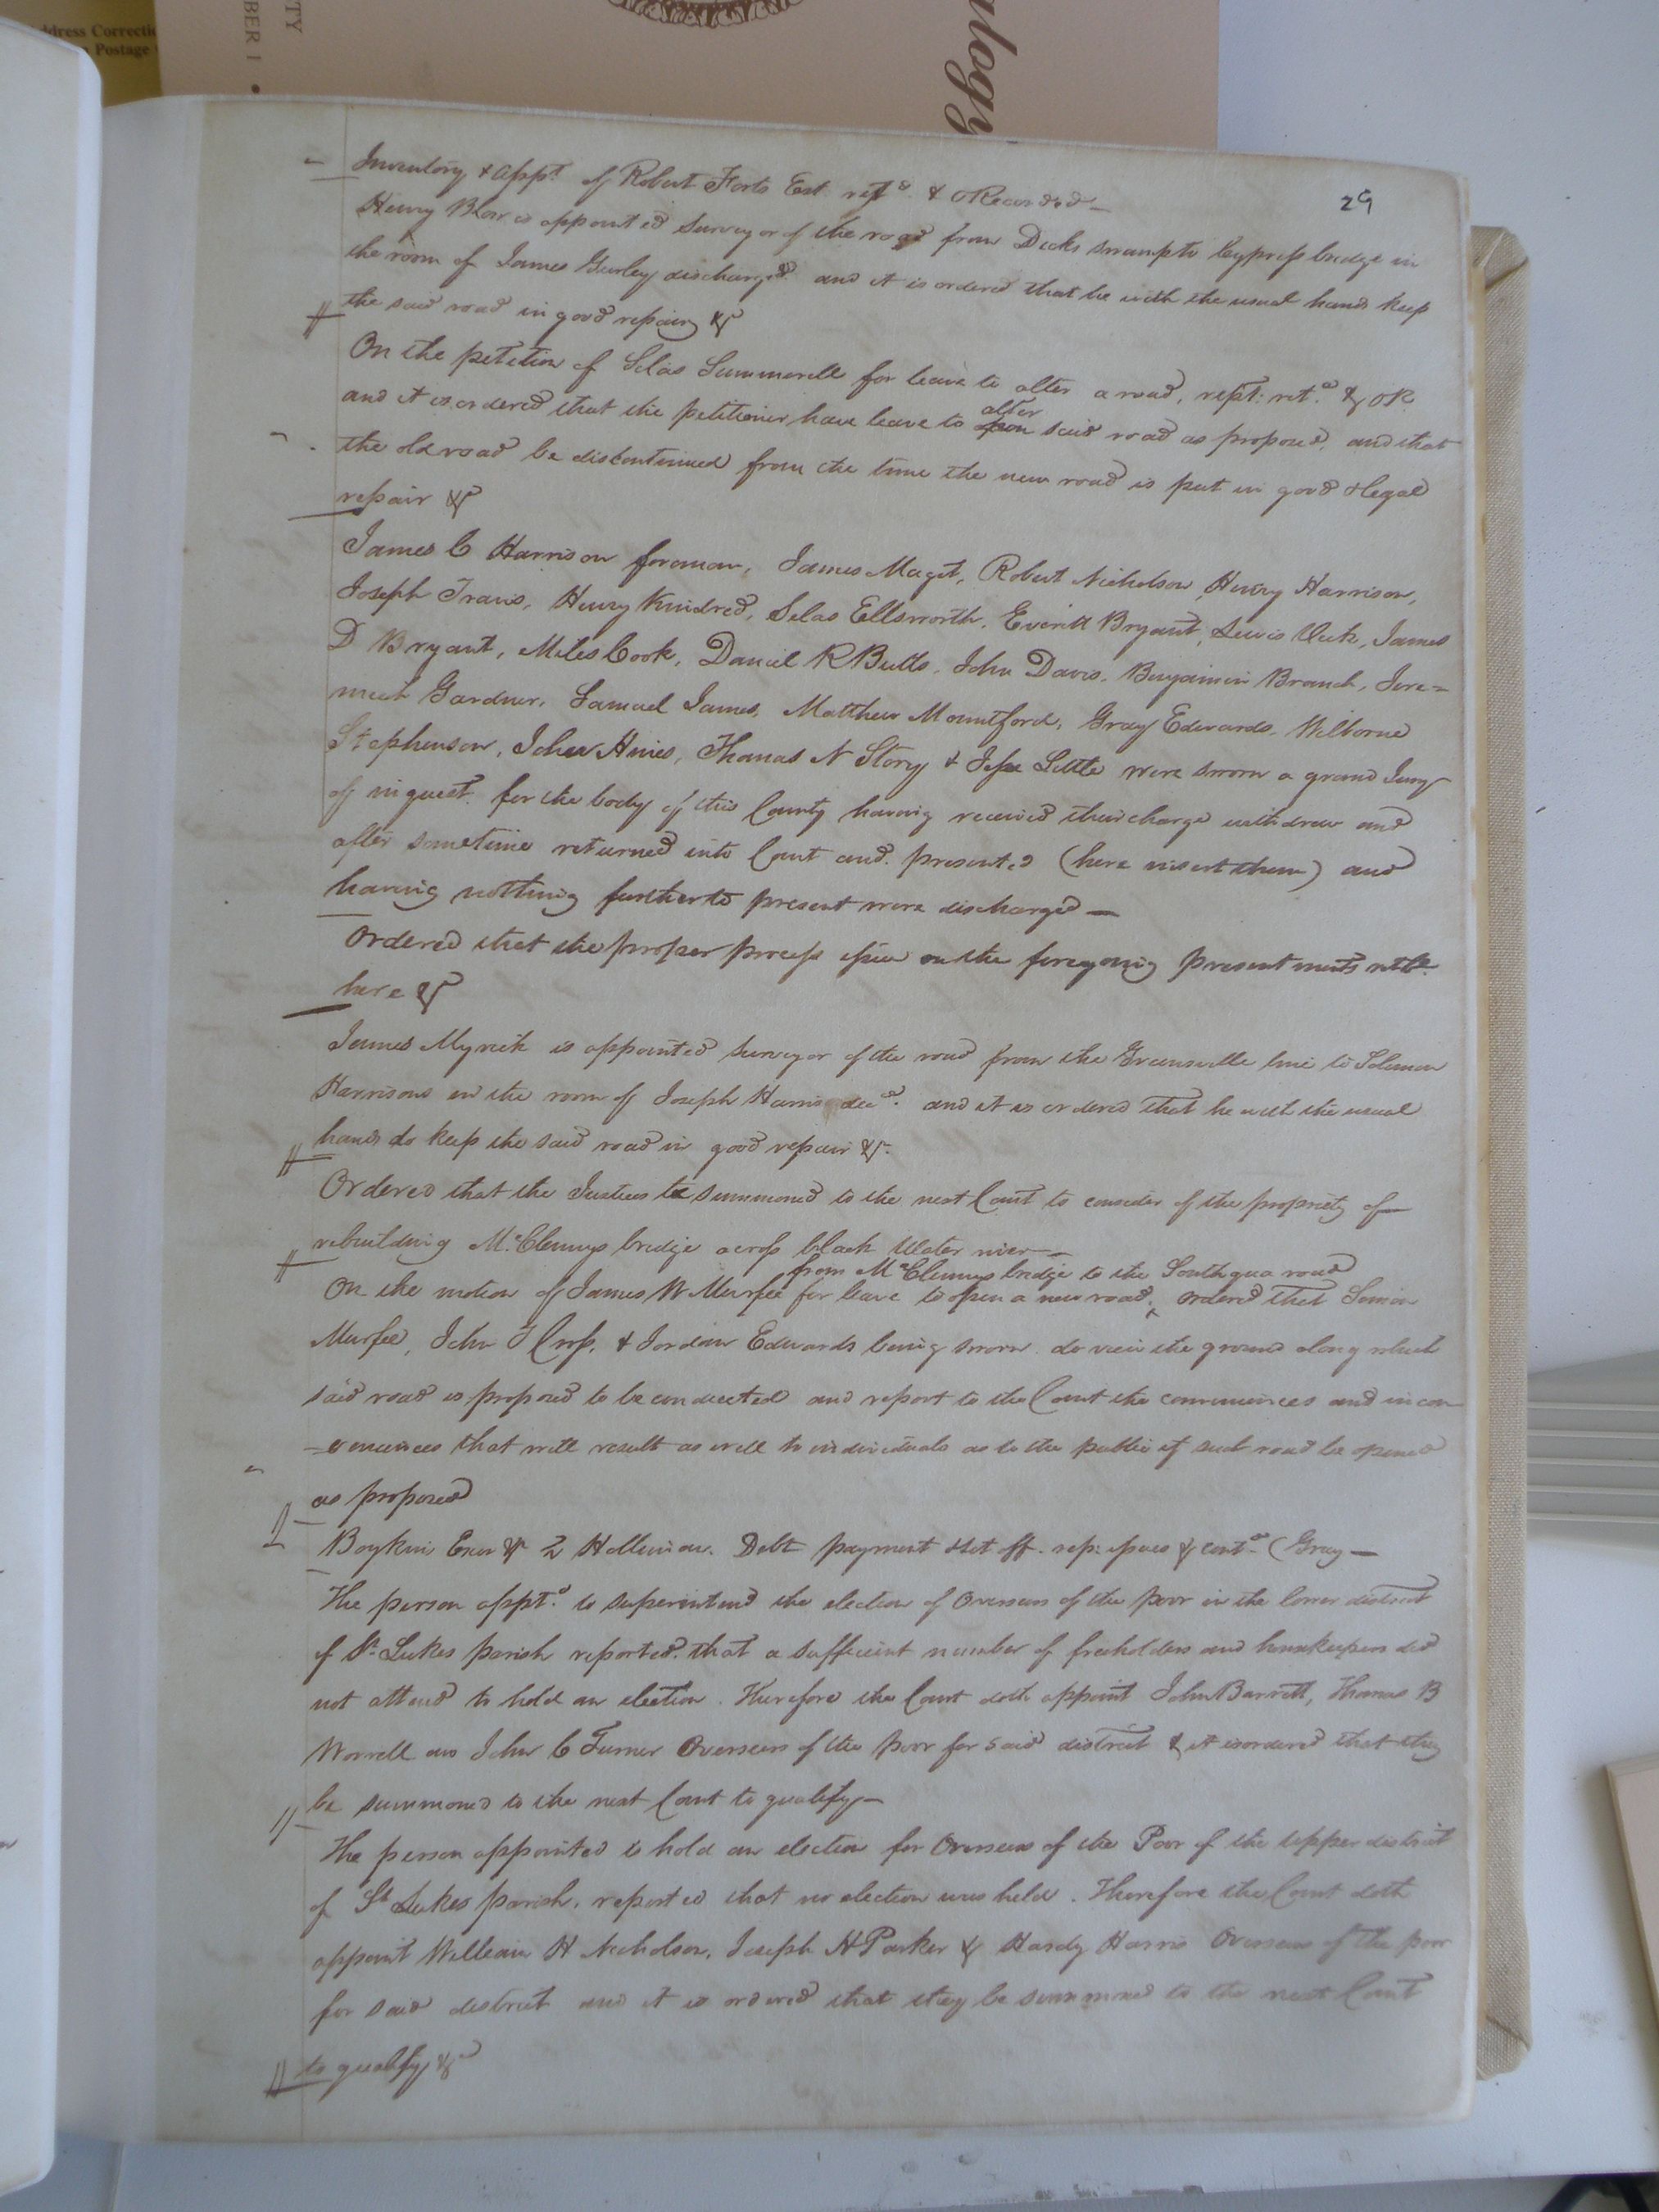 dress Correctio
Postage
BER 1 •
TY
ulogy
29
Inventory & Appt. of Robert Forts Est. retd. & ORecorded
Henry Blow is appointed Surveyor of the road from Dicks swamp to Cypress bridge in
the room of James Gurley discharged and it is ordered that he with the usual hands keep
the said road in good repair &c
On the petition of Silas Summerell for leave to alter a road, rept: retd. & OR
and it is ordered that the petitioner have leave to alter said road as proposed, and that
the old road be discontinued from the time the new road is put in good & legal
repair &c
James C Harrison foreman, James Maget, Robert Nicholson, Henry Harrison,
Joseph Travis, Henry Kindred, Silas Ellsworth, Everitt Bryant, Lewis Vick, James
D Bryant, Miles Cook, Daniel R Butts, John Davis, Benjamin Branch, Jere=
miah Gardner, Samuel James, Matthew Mountford, Gray Edwards, Wilborne
Stephenson, John Hines, Thomas N Story & Jesse Little were sworn a grand Jury
of inquest for the body of this County having received their charge withdrew and
after sometime returned into Court and presented (here insert them) and
having nothing further to present were discharged —
Ordered that the proper process issue on the foregoing presentments retble.
here &c
James Myrick is appointed Surveyor of the road from the Greensville line to Solomon
Harrisons in the room of Joseph Harris decd. and it is ordered that he with the usual
hands do keep the said road in good repair &c.
Ordered that the Justices be summoned to the next Court to consider of the propriety of
rebuilding McClennys bridge across black Water river —
from McClennys bridge to the Southqua road
On the motion of James W Murfee for leave to open a new road, ordered that Simon
Murfee, John T Cross, & Jordan Edwards being sworn do view the ground along which
said road is proposed to be conducted and report to the Court the conveniences and incon
=veniences that will result as well to individuals as to the public if such road be opened
as proposed
Boykins Exor &c Holleman. Debt payment & set off. rep: issues & contd. (Gray —
The person apptd. to superintend the election of Overseers of the poor in the lower district
of St. Lukes parish reported that a sufficient number of freeholders and housekeepers did
not attend to hold an election. Therefore the Court doth appoint John Barrett, Thomas B
Worrell and John C Turner Overseers of the poor for said district & it is ordered that they
be summoned to the next Court to qualify —
The person appointed to hold an election for Overseers of the Poor of the upper district
of St. Lukes parish, reported that no election was held. Therefore the Court doth
appoint William H Nicholson, Joseph H Parker & Hardy Harris Overseers of the poor
for said district and it is ordered that they be summoned to the next Court
to qualify &c